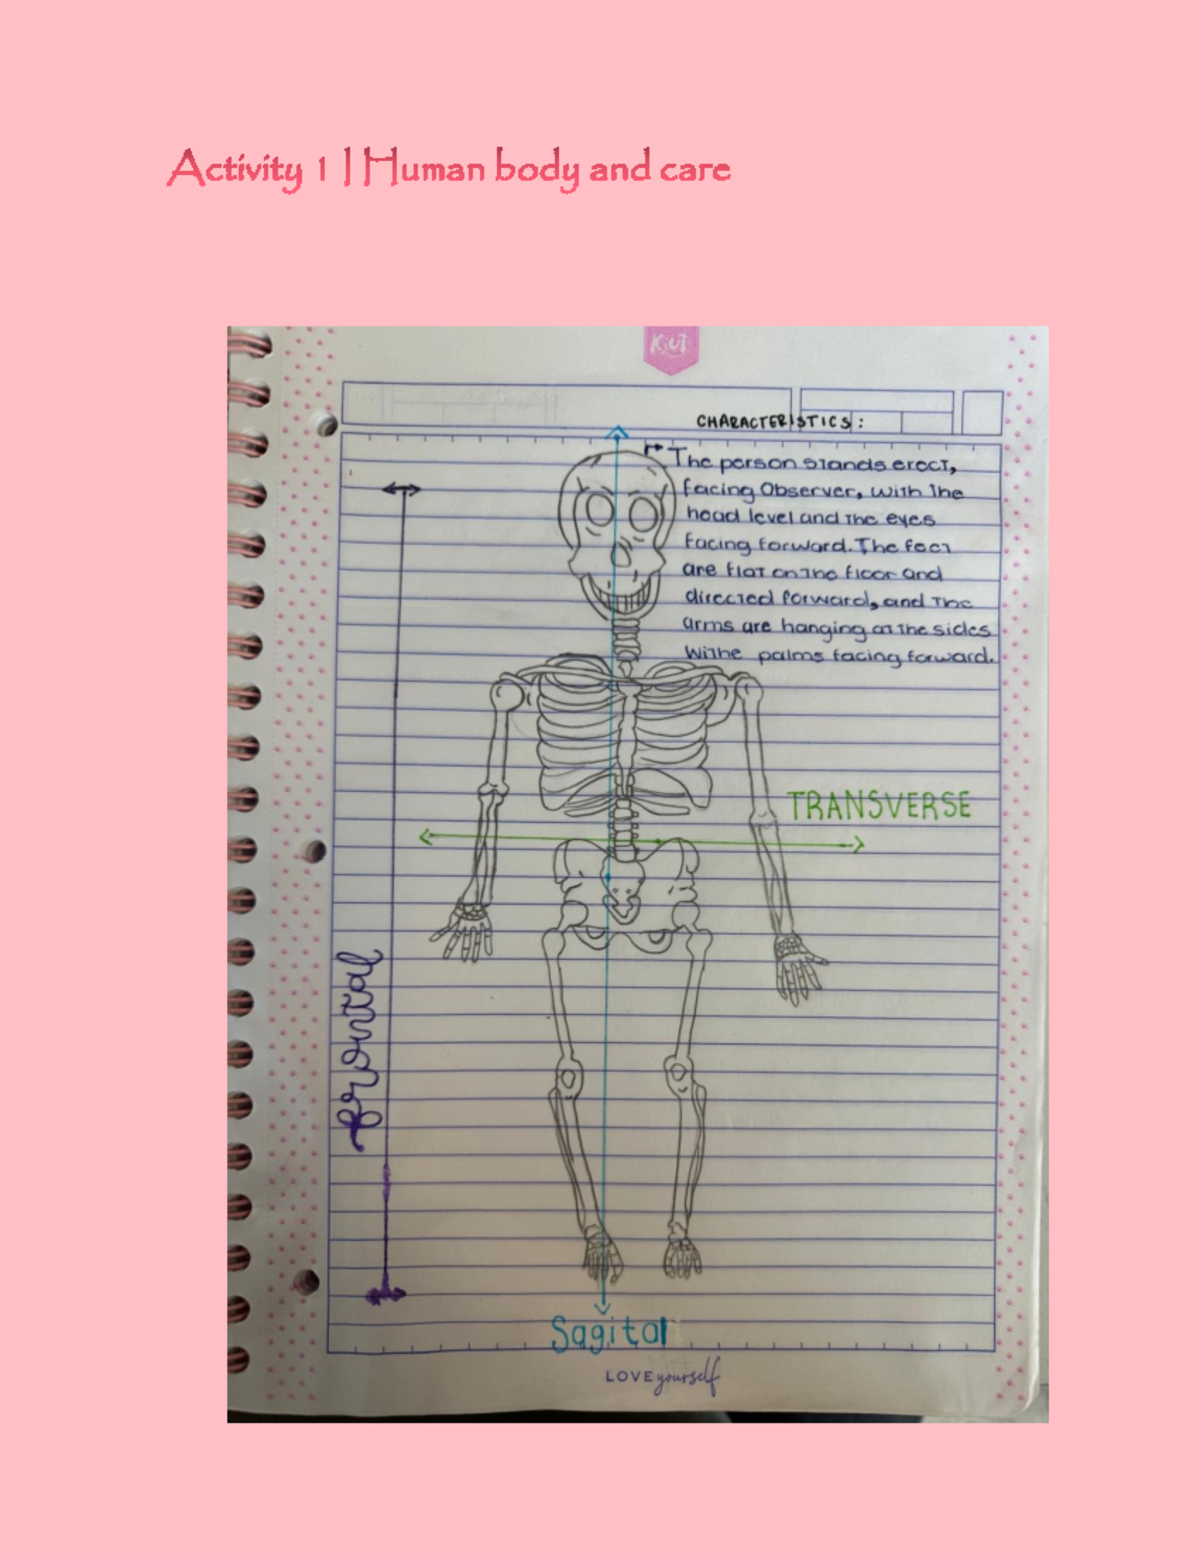 Activity 1 | Human body and care
Kiut
CHARACTERISTICS:
The person stands erect,
facing Observer, with the
head level and the eyes
facing forward. The feet
are flat on the floor and
directed forward, and the
arms are hanging at the sides
withe palms facing forward.
TRANSVERSE
frontal
Sagital
LOVE yourself